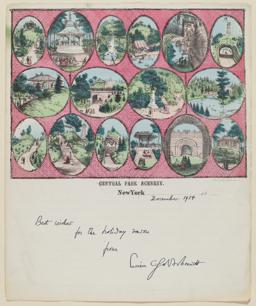 CENTRAL PARK SCENERY.
New York
December 1954
Best wishes
for the holiday season
from